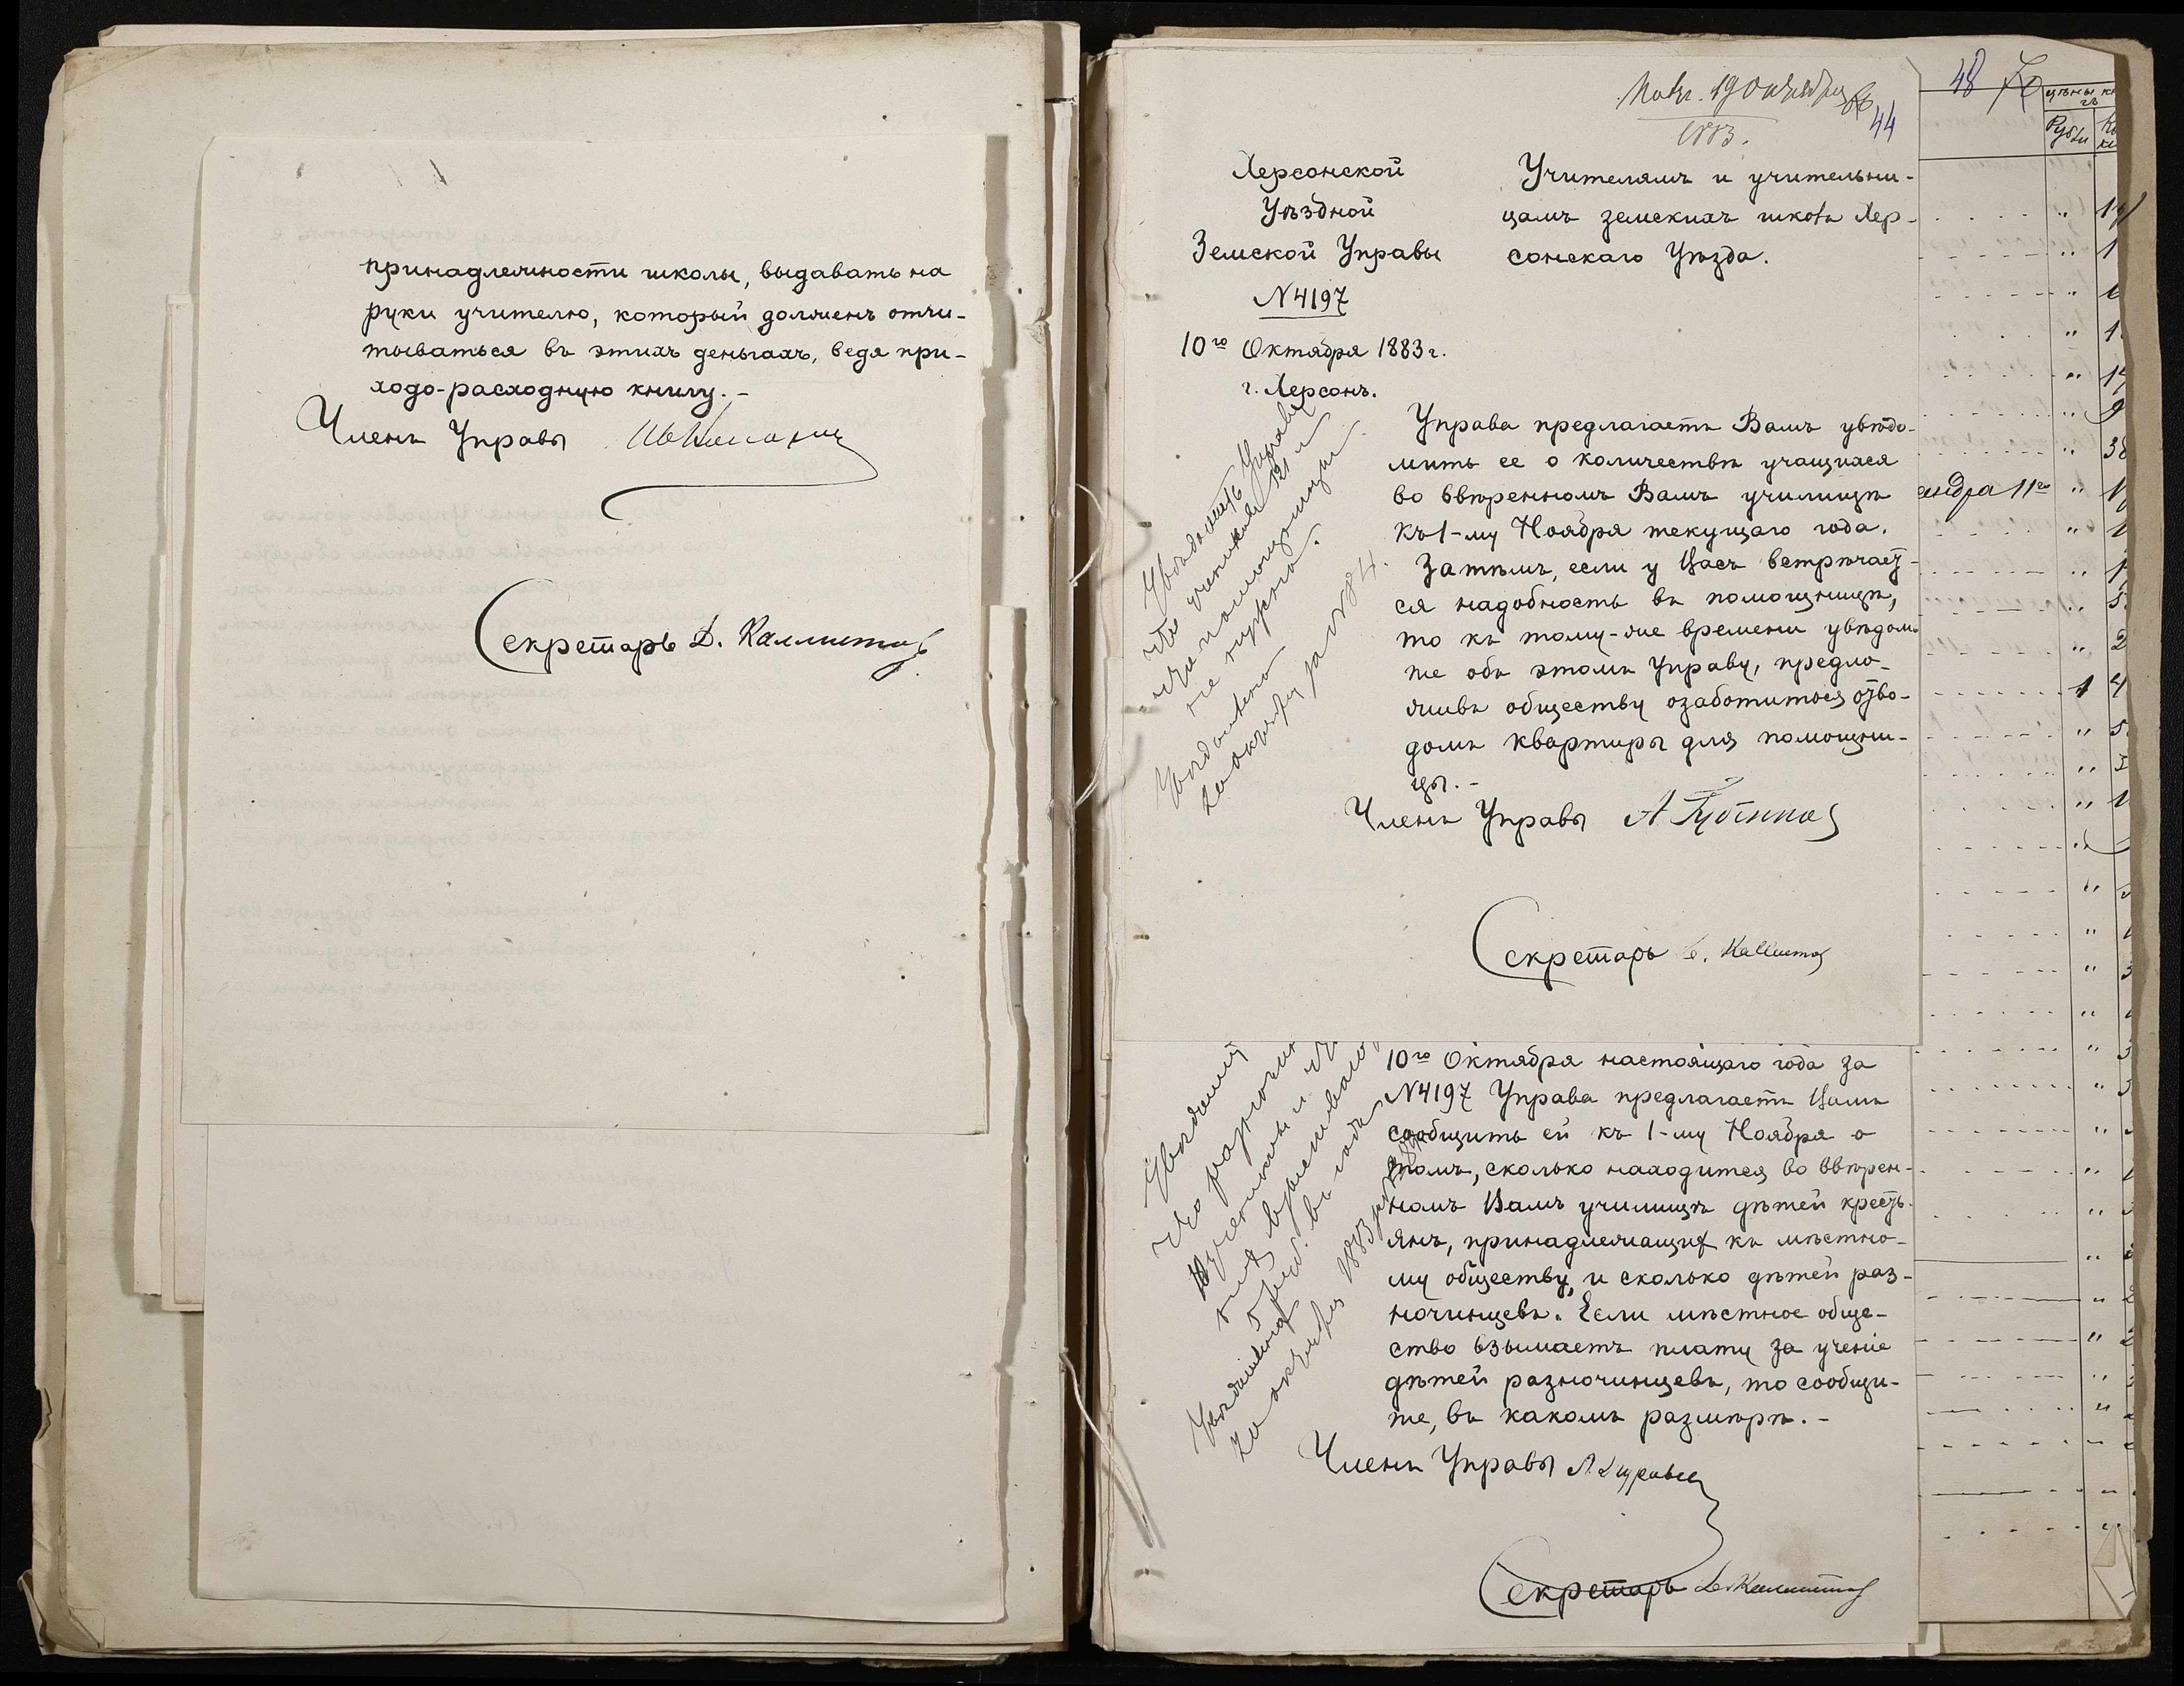 принадлежности школы, выдавать на
руки учителю, который долженъ отчи-
тываться въ этихъ деньгахъ, ведя при-
ходо-расходную книгу.-
Членъ Управы
Секретарь Д. Каллистов
48
44
Получ. 19 октября
1883.
Херсонской
Уѣздной
Земской Управы
N4197
10го Октября 1883г.
г. Херсонъ.
Учителямъ и учительни-
цамъ земскихъ школъ Хер-
сонскаго Уѣзда.
Управа предлагаетъ Вамъ увѣдо-
мить ее о количествѣ учащихся
во ввѣренномъ Вамъ училищѣ
къ 1-му Ноября текущаго года.
Затѣмъ, если у Васъ встрѣчает-
ся надобность въ помощницѣ,
то къ тому-же времени увѣдоми-
те объ этомъ Управу, предло-
живъ обществу озаботиться отво-
домъ квартиры для помощни-
цы.-
Членъ Управы
Секретарь Каллистов
что учениковъ 121 и
что помощницы
не нужно.
октября за N 84.
10го Октября настоящаго года за
N4197 Управа предлагаетъ Вамъ
сообщить ей къ 1-му Ноября о
томъ, сколько находится во ввѣрен-
номъ Вамъ училищѣ дѣтей кресть-
янъ, принадлежащих къ мѣстно-
му обществу, и сколько дѣтей раз-
ночинцевъ. Если мѣстное обще-
ство взымаетъ плату за ученіе
дѣтей разночинцевъ, то сообщи-
те, въ какомъ размѣрѣ.-
Членъ Управы
Секретарь Д. Каллистов
октября 1883
цѣны
Рубли
андра 11го